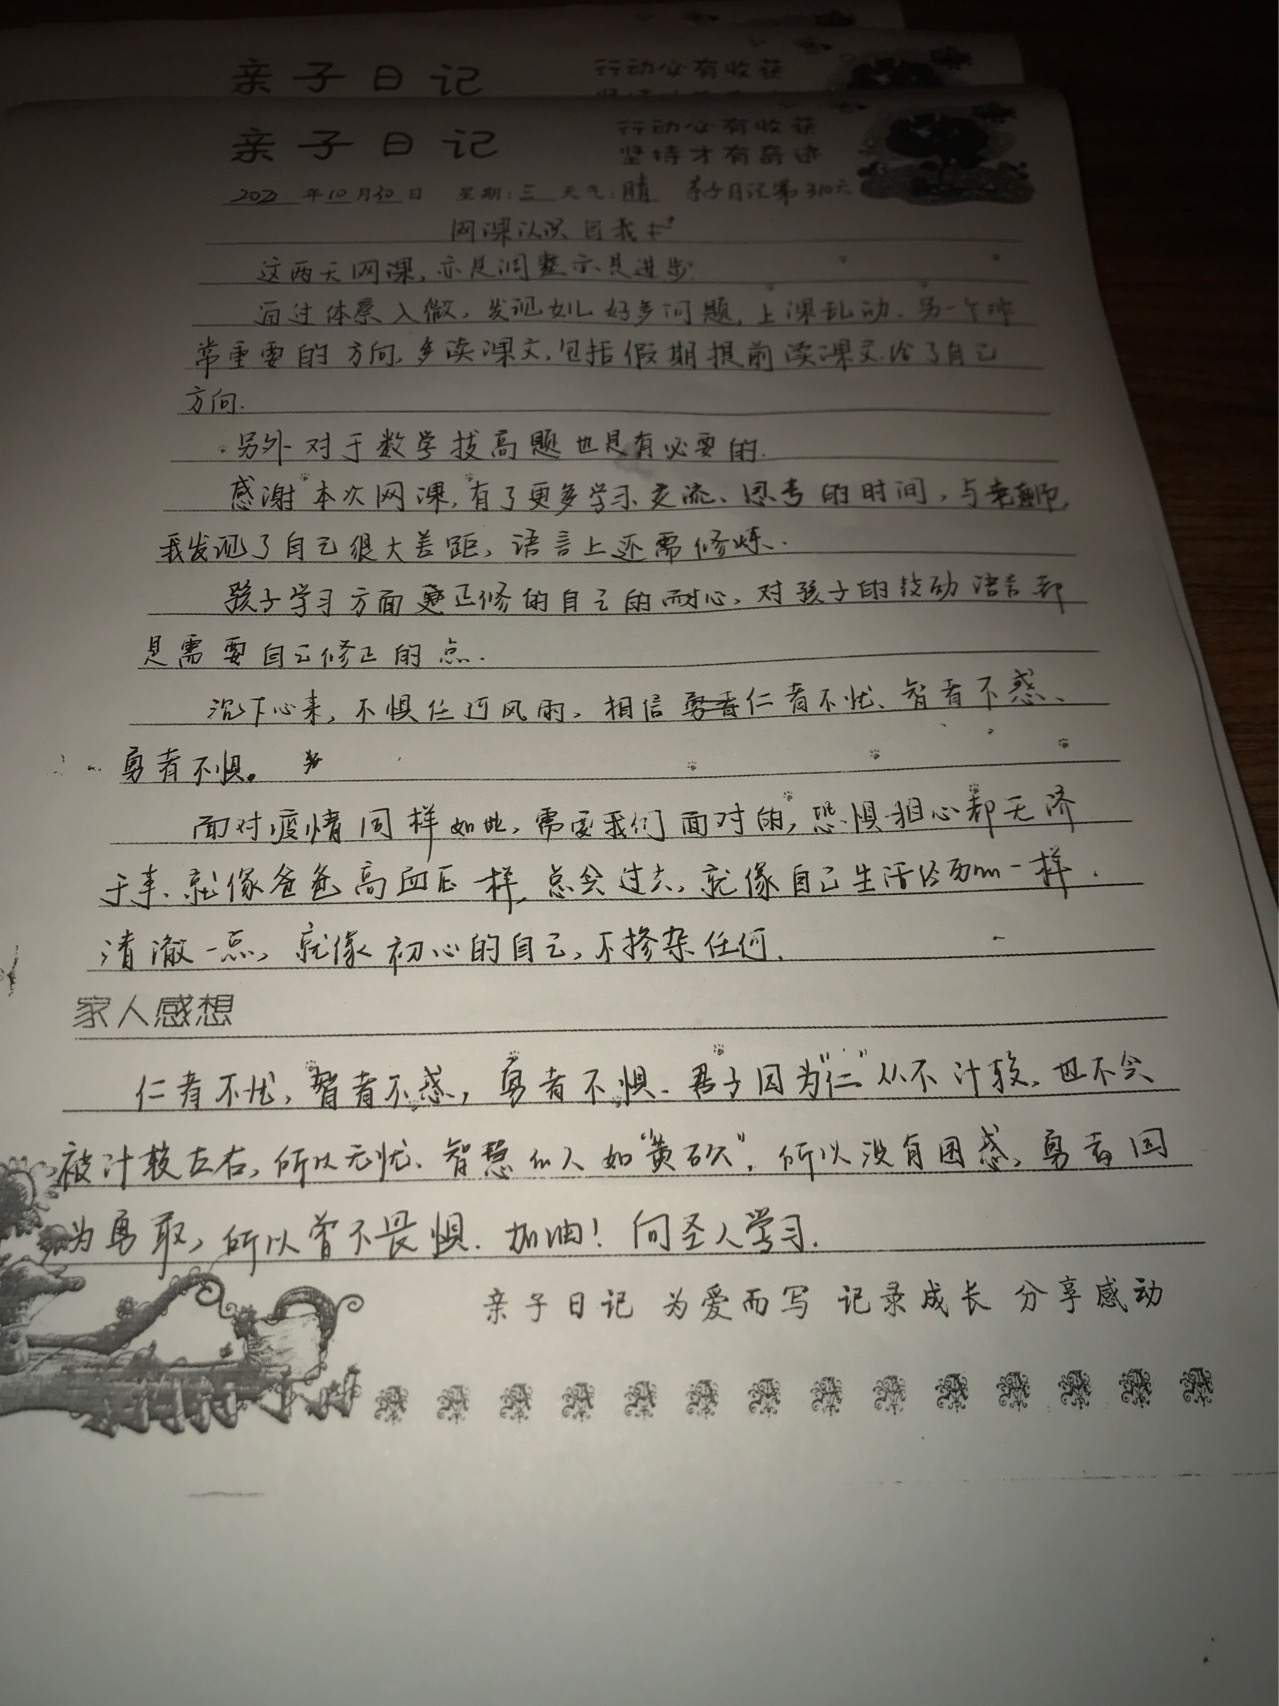 亲子日记
行动必有收获
亲子日记
行动必有收获
坚持才有奇迹
年10月30日 星期:三 天气:晴 亲子日记第310天
网课认识自我
这两天网课,亦是调整亦是进步
通过体察入微,发现女儿好多问题,上课乱动.另一个非
常重要的方向,多读课文,包括假期提前读课文.给了自己
方向.
另外对于数学拔高题也是有必要的.
感谢本次网课,有了更多学习交流、思考的时间,与老师,
我发现了自己很大差距,语言上还需修炼.
孩子学习方面 正修的自己的耐心,对孩子的 动语言都
是需要自己修正的点.
沉下心来,不惧任何风雨,相信仁者不忧、智者不惑、
勇者不惧。
面对疫情同样如此,需要我们面对的,恐惧担心都无济
于事、就像爸爸高血压一样,总会过去,就像自己生活经历一样.
清澈一点,就像初心的自己,不掺杂任何.
家人感想
仁者不忧,智者不惑,勇者不惧.君子因为“仁”从不计较,也不会
被计较左右,所以无忧.智慧 人如“黄 ”,所以没有困惑,勇者因
为勇敢,所以曾不畏惧.加油!向圣人学习.
亲子日记 为爱而写 记录成长 分享感动